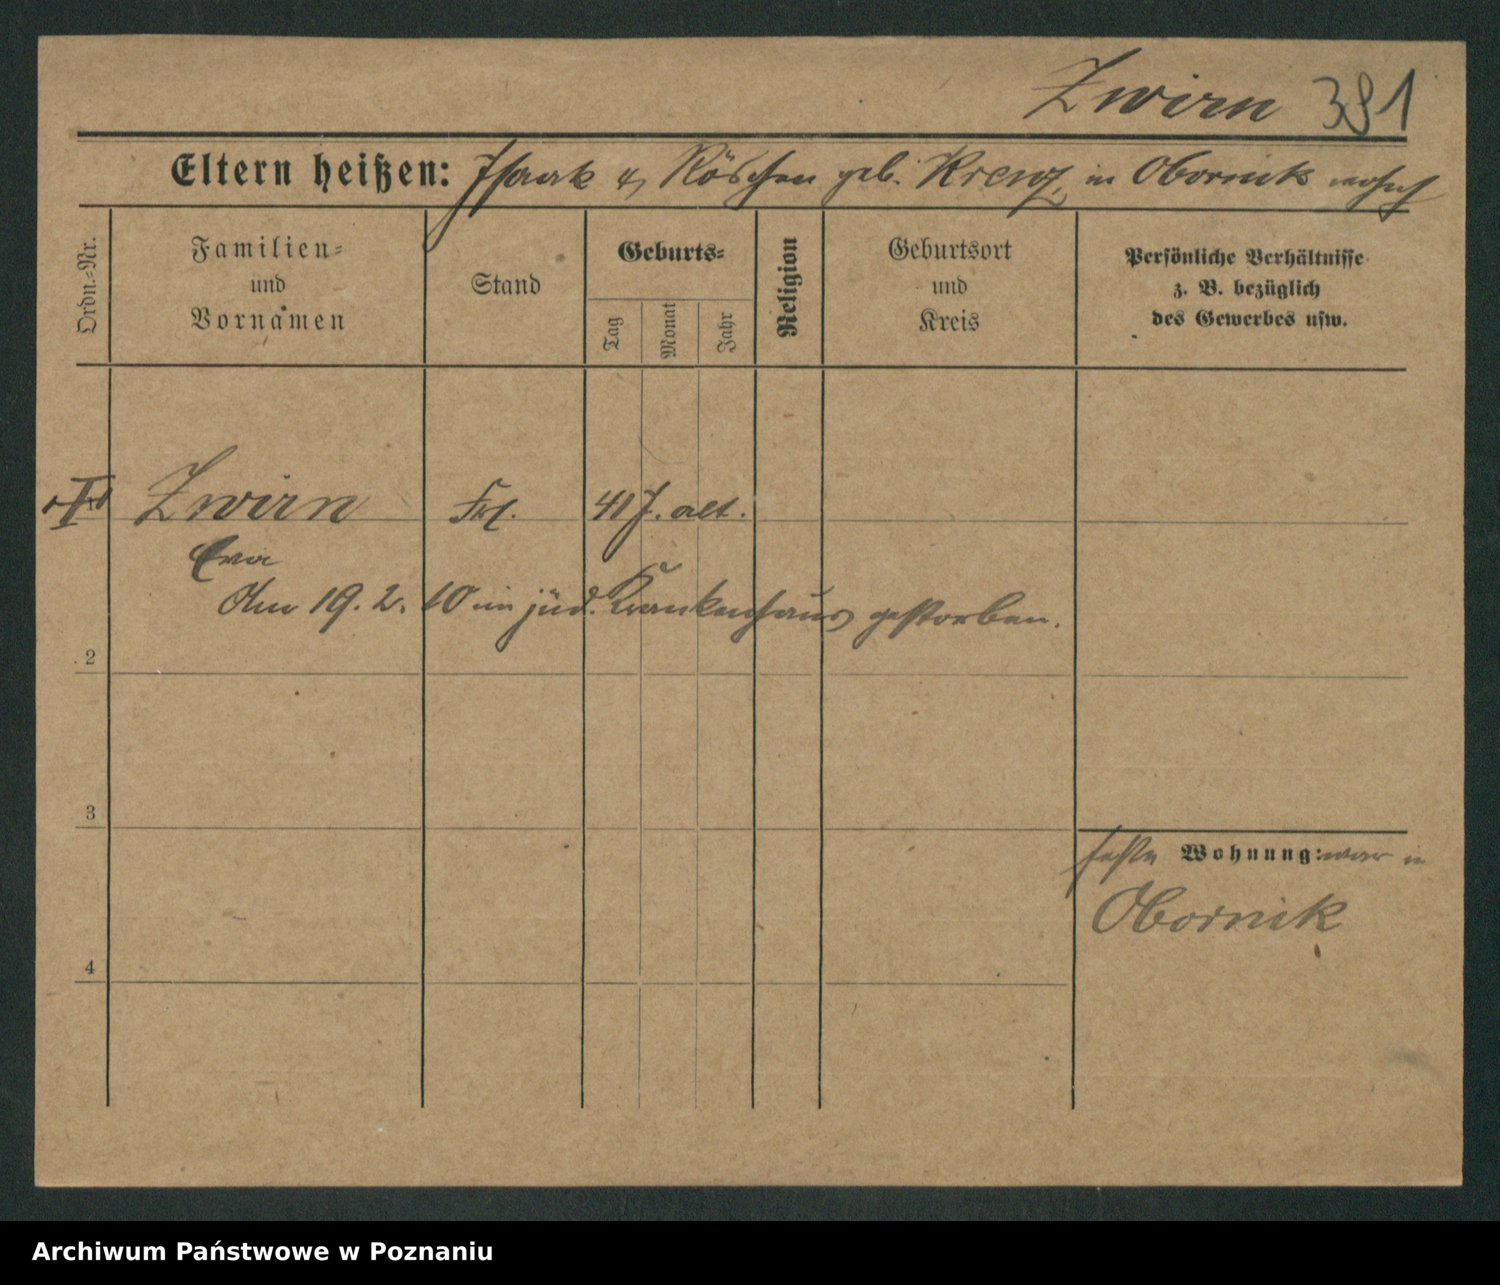 Zwirn 381
Eltern heißen: Isaak & Röschen geb. Krenz, in Obornik wohnh
Ordn.-Nr.
Familien-
und
Vornamen
Stand
Geburts-
Tag
Monat
Jahr
Religion
Geburtsort
und
Kreis
Persönliche Verhältnisse
z. B. bezüglich
des Gewerbes usw.
Zwirn Frl. 41 J. alt.
Eva
Am 19. 2. 10 im jüd. Krankenhaus gestorben.
2
3
feste Wohnung: war in
Obornik
4
Archiwum Państwowe w Poznaniu